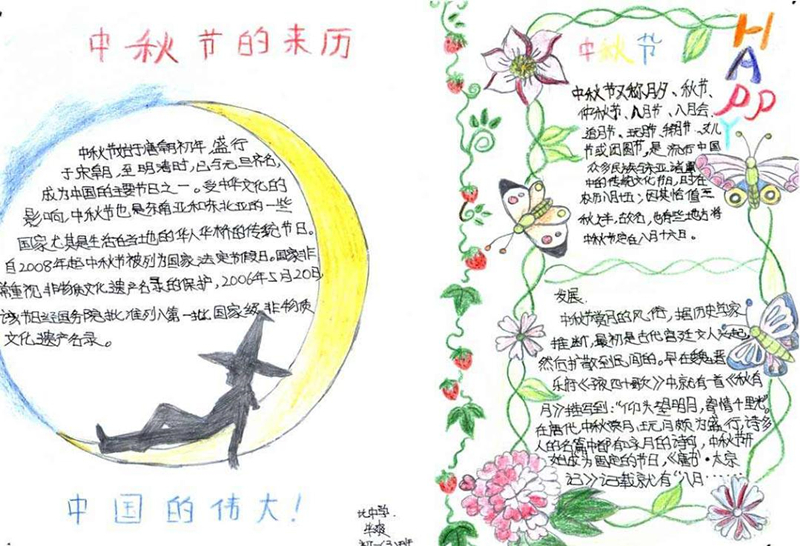 中秋节的来历
中秋节始于唐朝初年,盛行
于宋朝,至明清时,已与元旦齐名,
成为中国的主要节日之一。受中华文化的
影响,中秋节也是东南亚和东北亚的一些
国家尤其是生活在当地的华人华侨的传统节日。
自2008年起中秋节被列为国家法定节假日。国家非
常重视非物质文化遗产名录的保护,2006年5月20日,
该节日经国务院批准列入第一批国家级非物质
文化遗产名录。
中国的伟大!
HAPPY
中秋节
中秋节又称月夕、秋节、
仲秋节、八月节、八月会、
追月节、玩月节、拜月节、女儿
节或团圆节,是流行于中国
众多民族与东亚诸国
中的传统文化节日,时在
农历八月十五;因其恰值三
秋之半,故名,也有些地方将
中秋节定在八月十六日。
发展
中秋节赏月的风俗,据历史学家
推断,最初是古代宫廷文人兴起,
然后扩散到民间的。早在魏晋
乐府《子夜四十歌》中,就有一首《秋有
月》描写到:"仰头望明月,寄情千里光。"
在唐代,中秋赏月、玩月颇为盛行,许多
人的名篇中都有咏月的诗句,中秋节开
始成为固定的节日,《唐书·太宗
记》记载就有"八月……